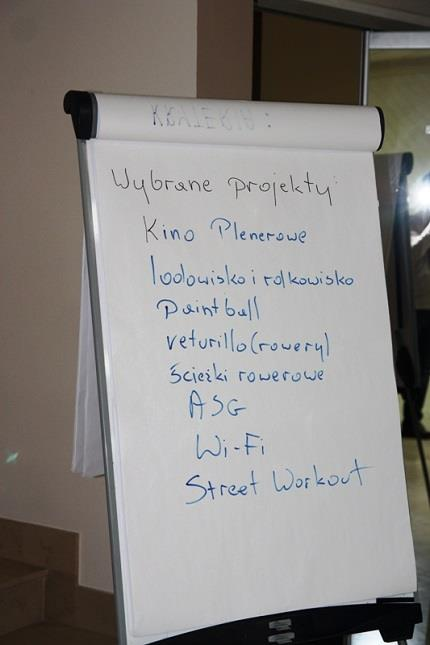 KRYTERIA:
Wybrane projekty:
Kino Plenerowe
lodowisko i rolkowisko
Paintball
veturillo (rowery)
Ścieżki rowerowe
ASG
Wi-Fi
Street Workout